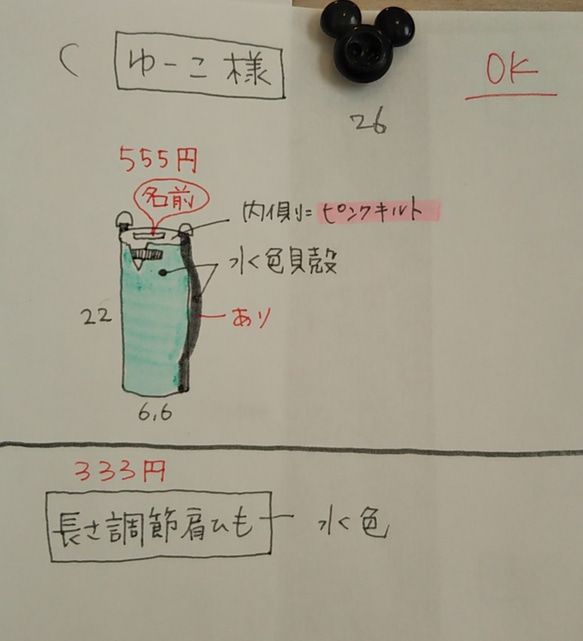 C ゆーこ様
OK
26
555円
名前
内側に ピンクキルト
水色貝殻
22
あり
6,6
333円
長さ調節肩ひも
水色